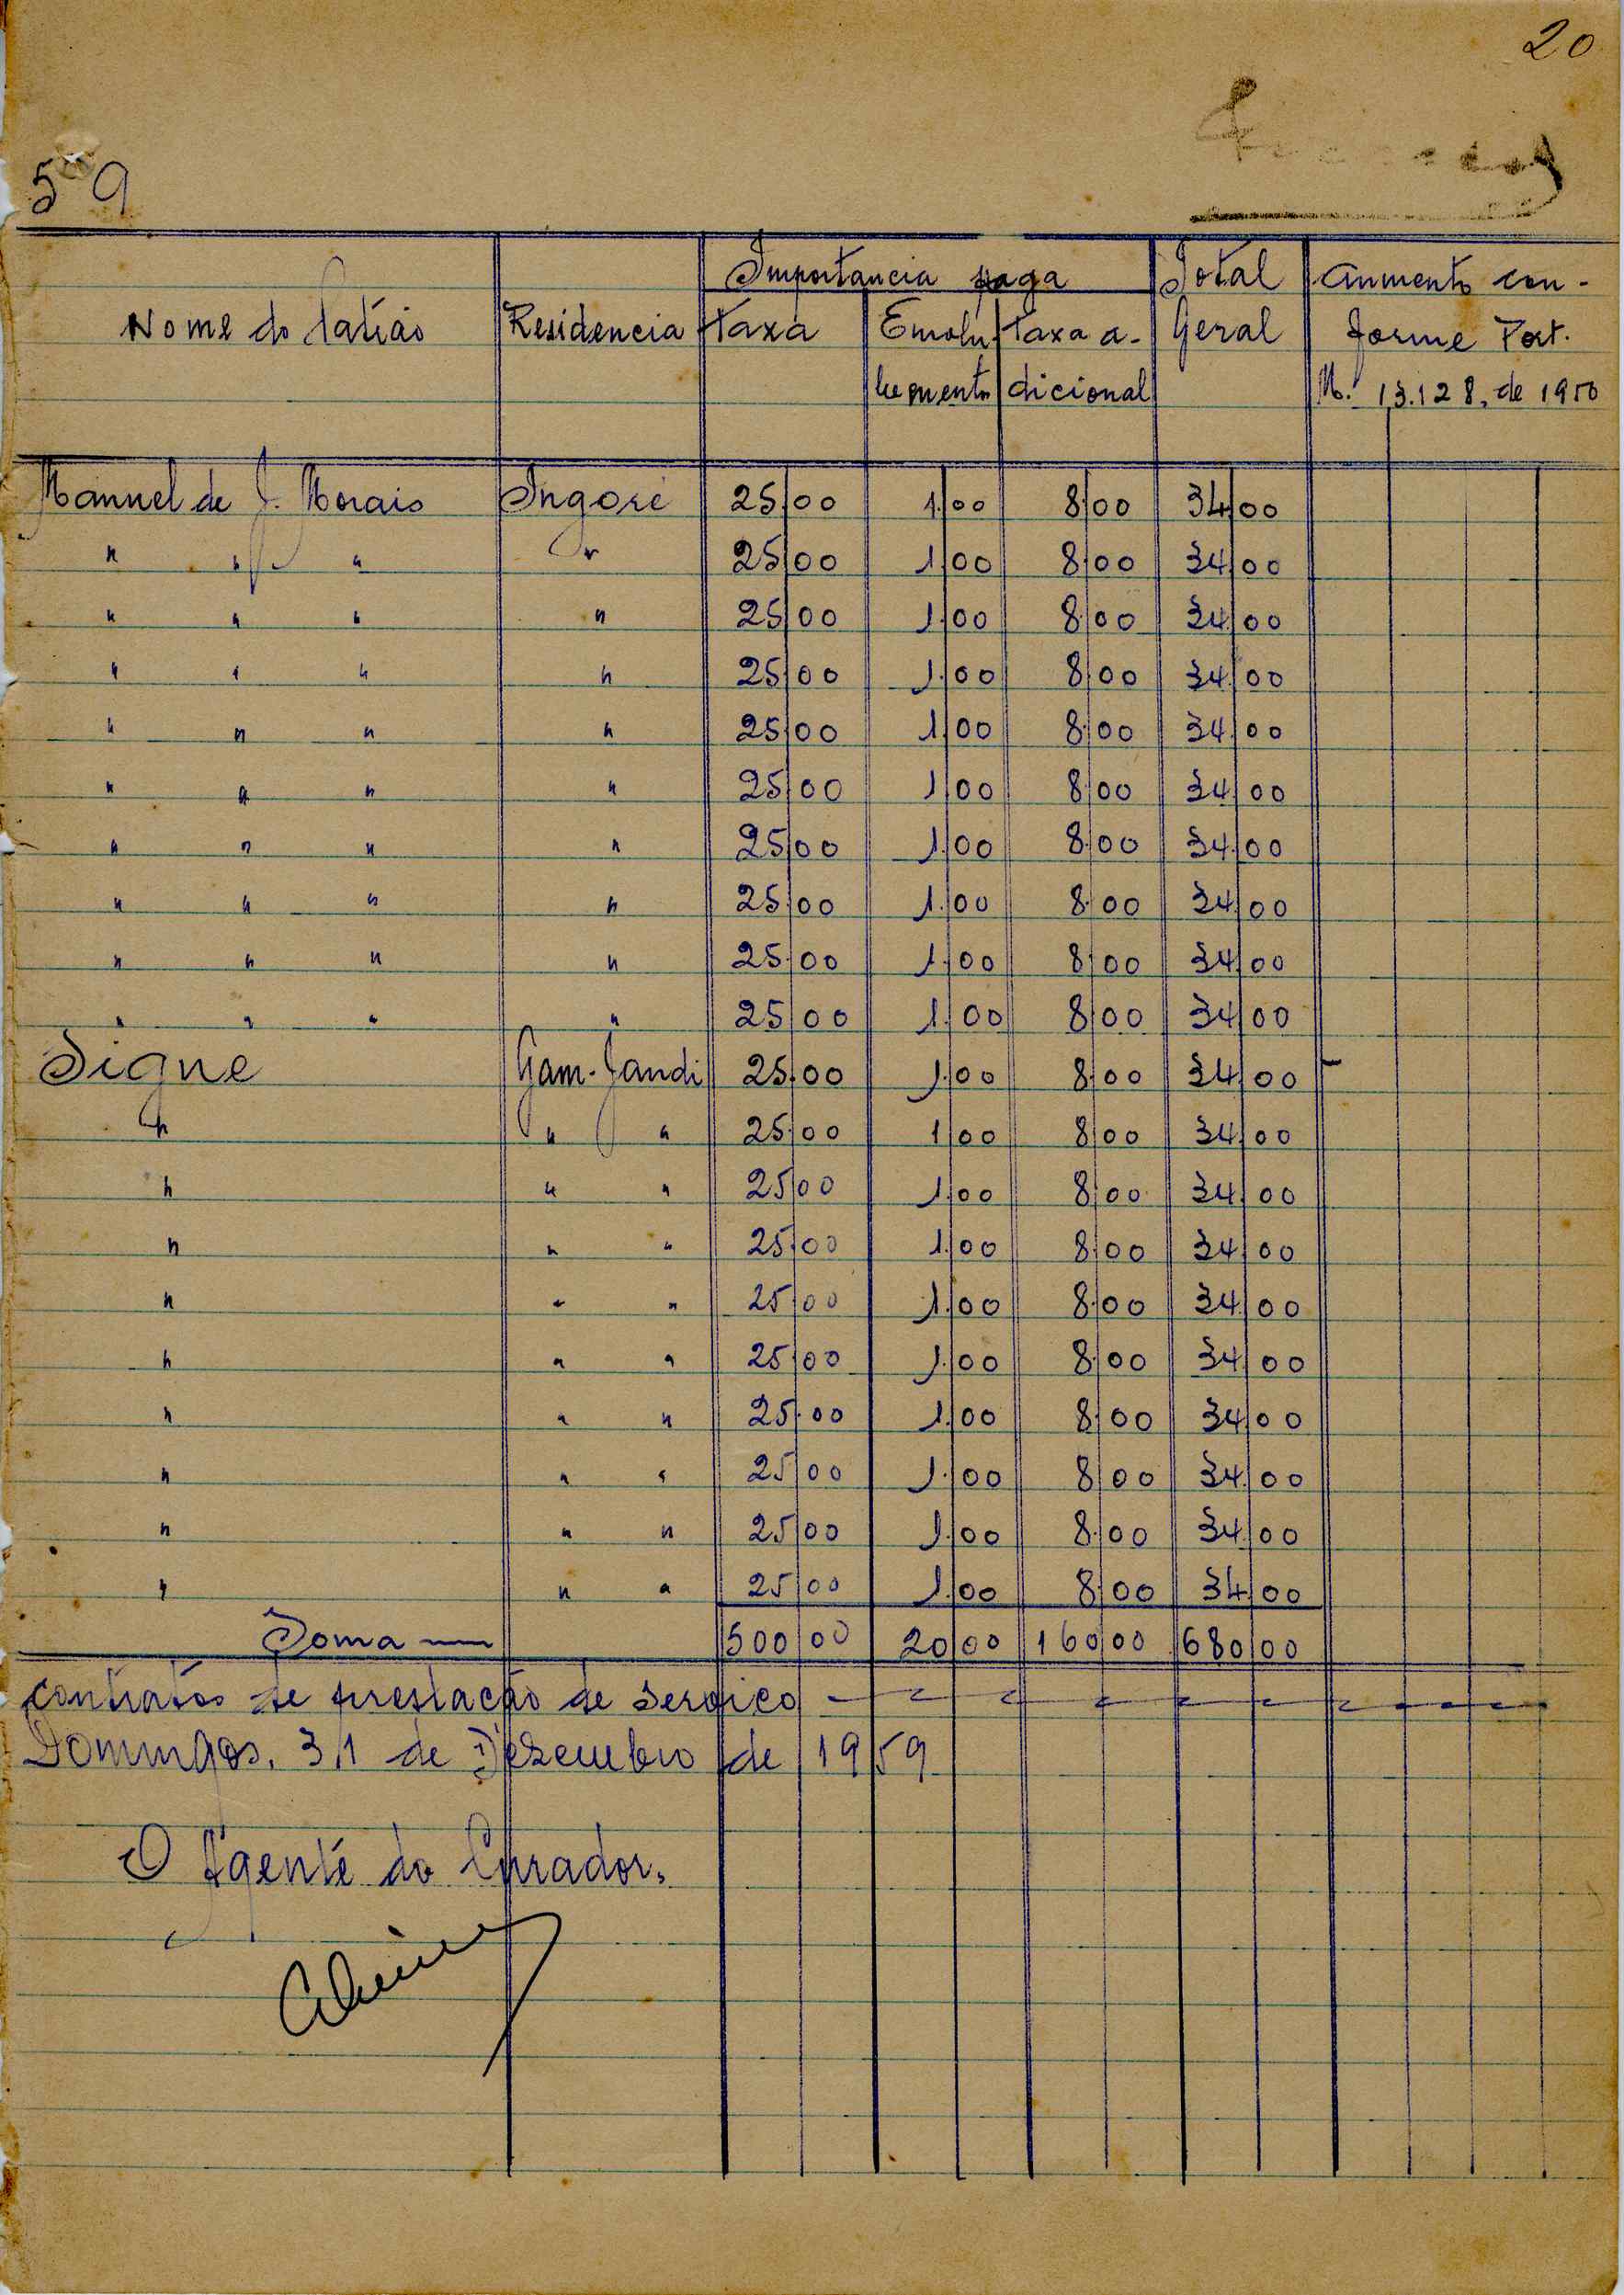 20
59
Importancia paga Total Aumento con-
Nome do Patrão Residencia Taxa Emolu- Taxa a- Geral forme Port.
dicional N.º 13.128, de 1950
Manuel de J. Morais Ingoré 25,00 1,00 8,00 34,00
" " " " 25,00 1,00 8,00 34,00
" " " " 25,00 1,00 8,00 34,00
" " " " 25,00 1,00 8,00 34,00
" " " " 25,00 1,00 8,00 34,00
" " " " 25,00 1,00 8,00 34,00
" " " " 25,00 1,00 8,00 34,00
" " " " 25,00 1,00 8,00 34,00
" " " " 25,00 1,00 8,00 34,00
" " " " 25,00 1,00 8,00 34,00
Signe Gam-Jandi 25,00 1,00 8,00 34,00
" " " 25,00 1,00 8,00 34,00
" " " 25,00 1,00 8,00 34,00
" " " 25,00 1,00 8,00 34,00
" " " 25,00 1,00 8,00 34,00
" " " 25,00 1,00 8,00 34,00
" " " 25,00 1,00 8,00 34,00
" " " 25,00 1,00 8,00 34,00
" " " 25,00 1,00 8,00 34,00
" " " 25,00 1,00 8,00 34,00
Soma 500,00 20,00 160,00 680,00
contratos de prestação de serviço
Domingos, 31 de Dezembro de 1959
O Agente do Curador,